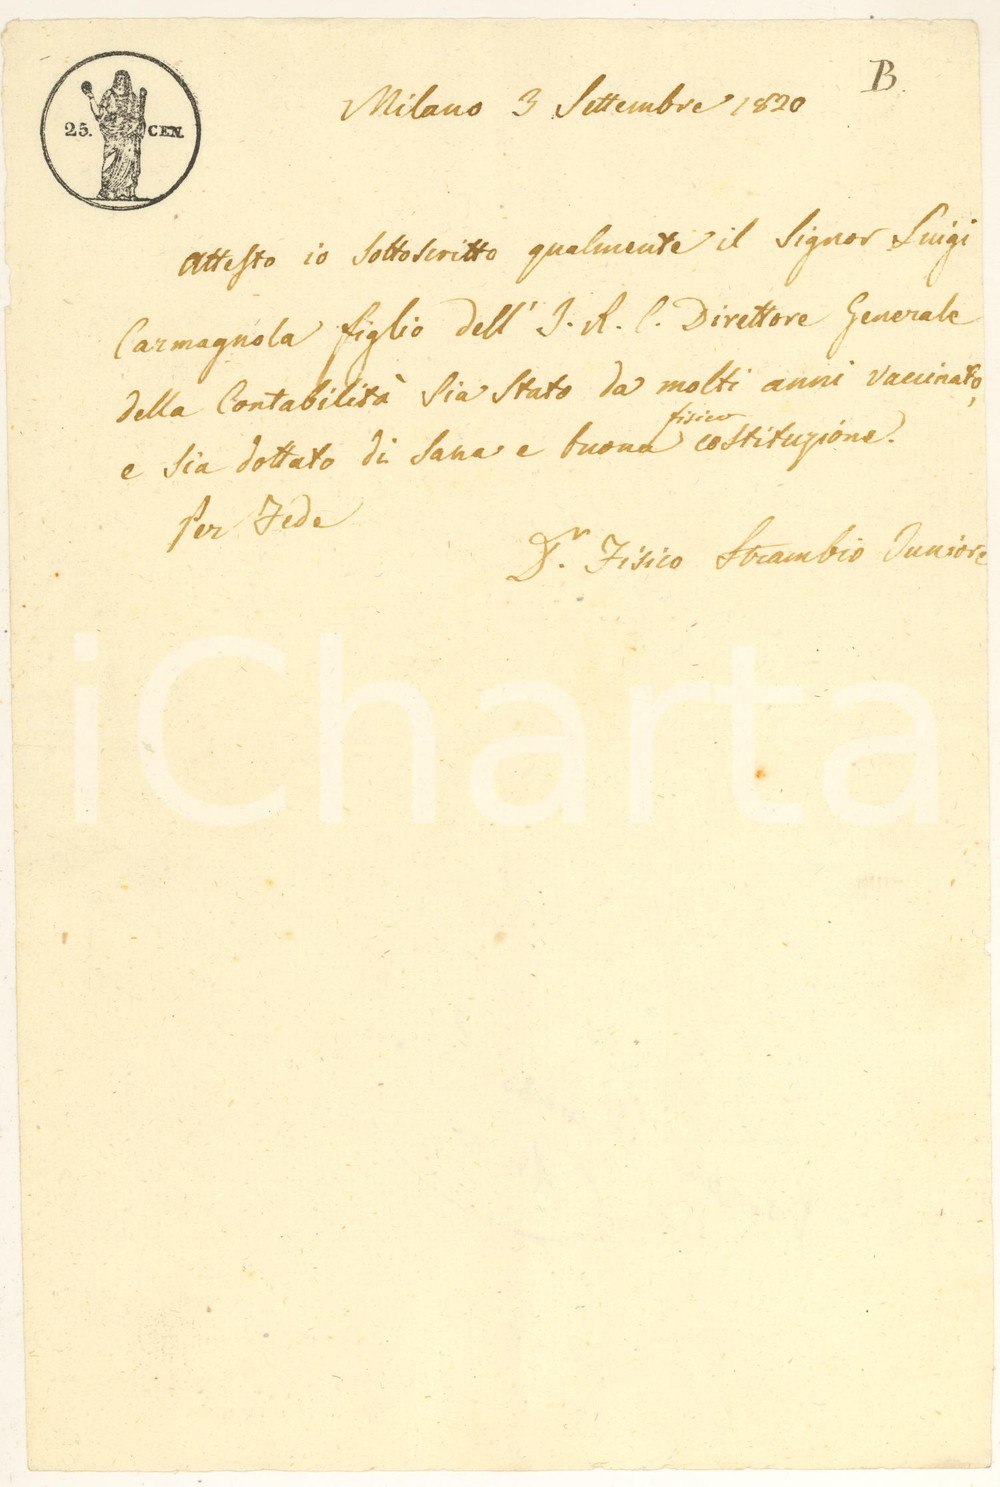 25. CEN.
B.
Milano 3 Settembre 1820
Attesto io sottoscritto qualmente il Signor Luigi
Carmagnola figlio dell' I. R. C. Direttore Generale
della Contabilità sia stato da molti anni vaccinato,
fisico
e sia dottato di sana e buona costituzione.
Per Fede
Dr. Fisico Strambio Juniore
iCharta